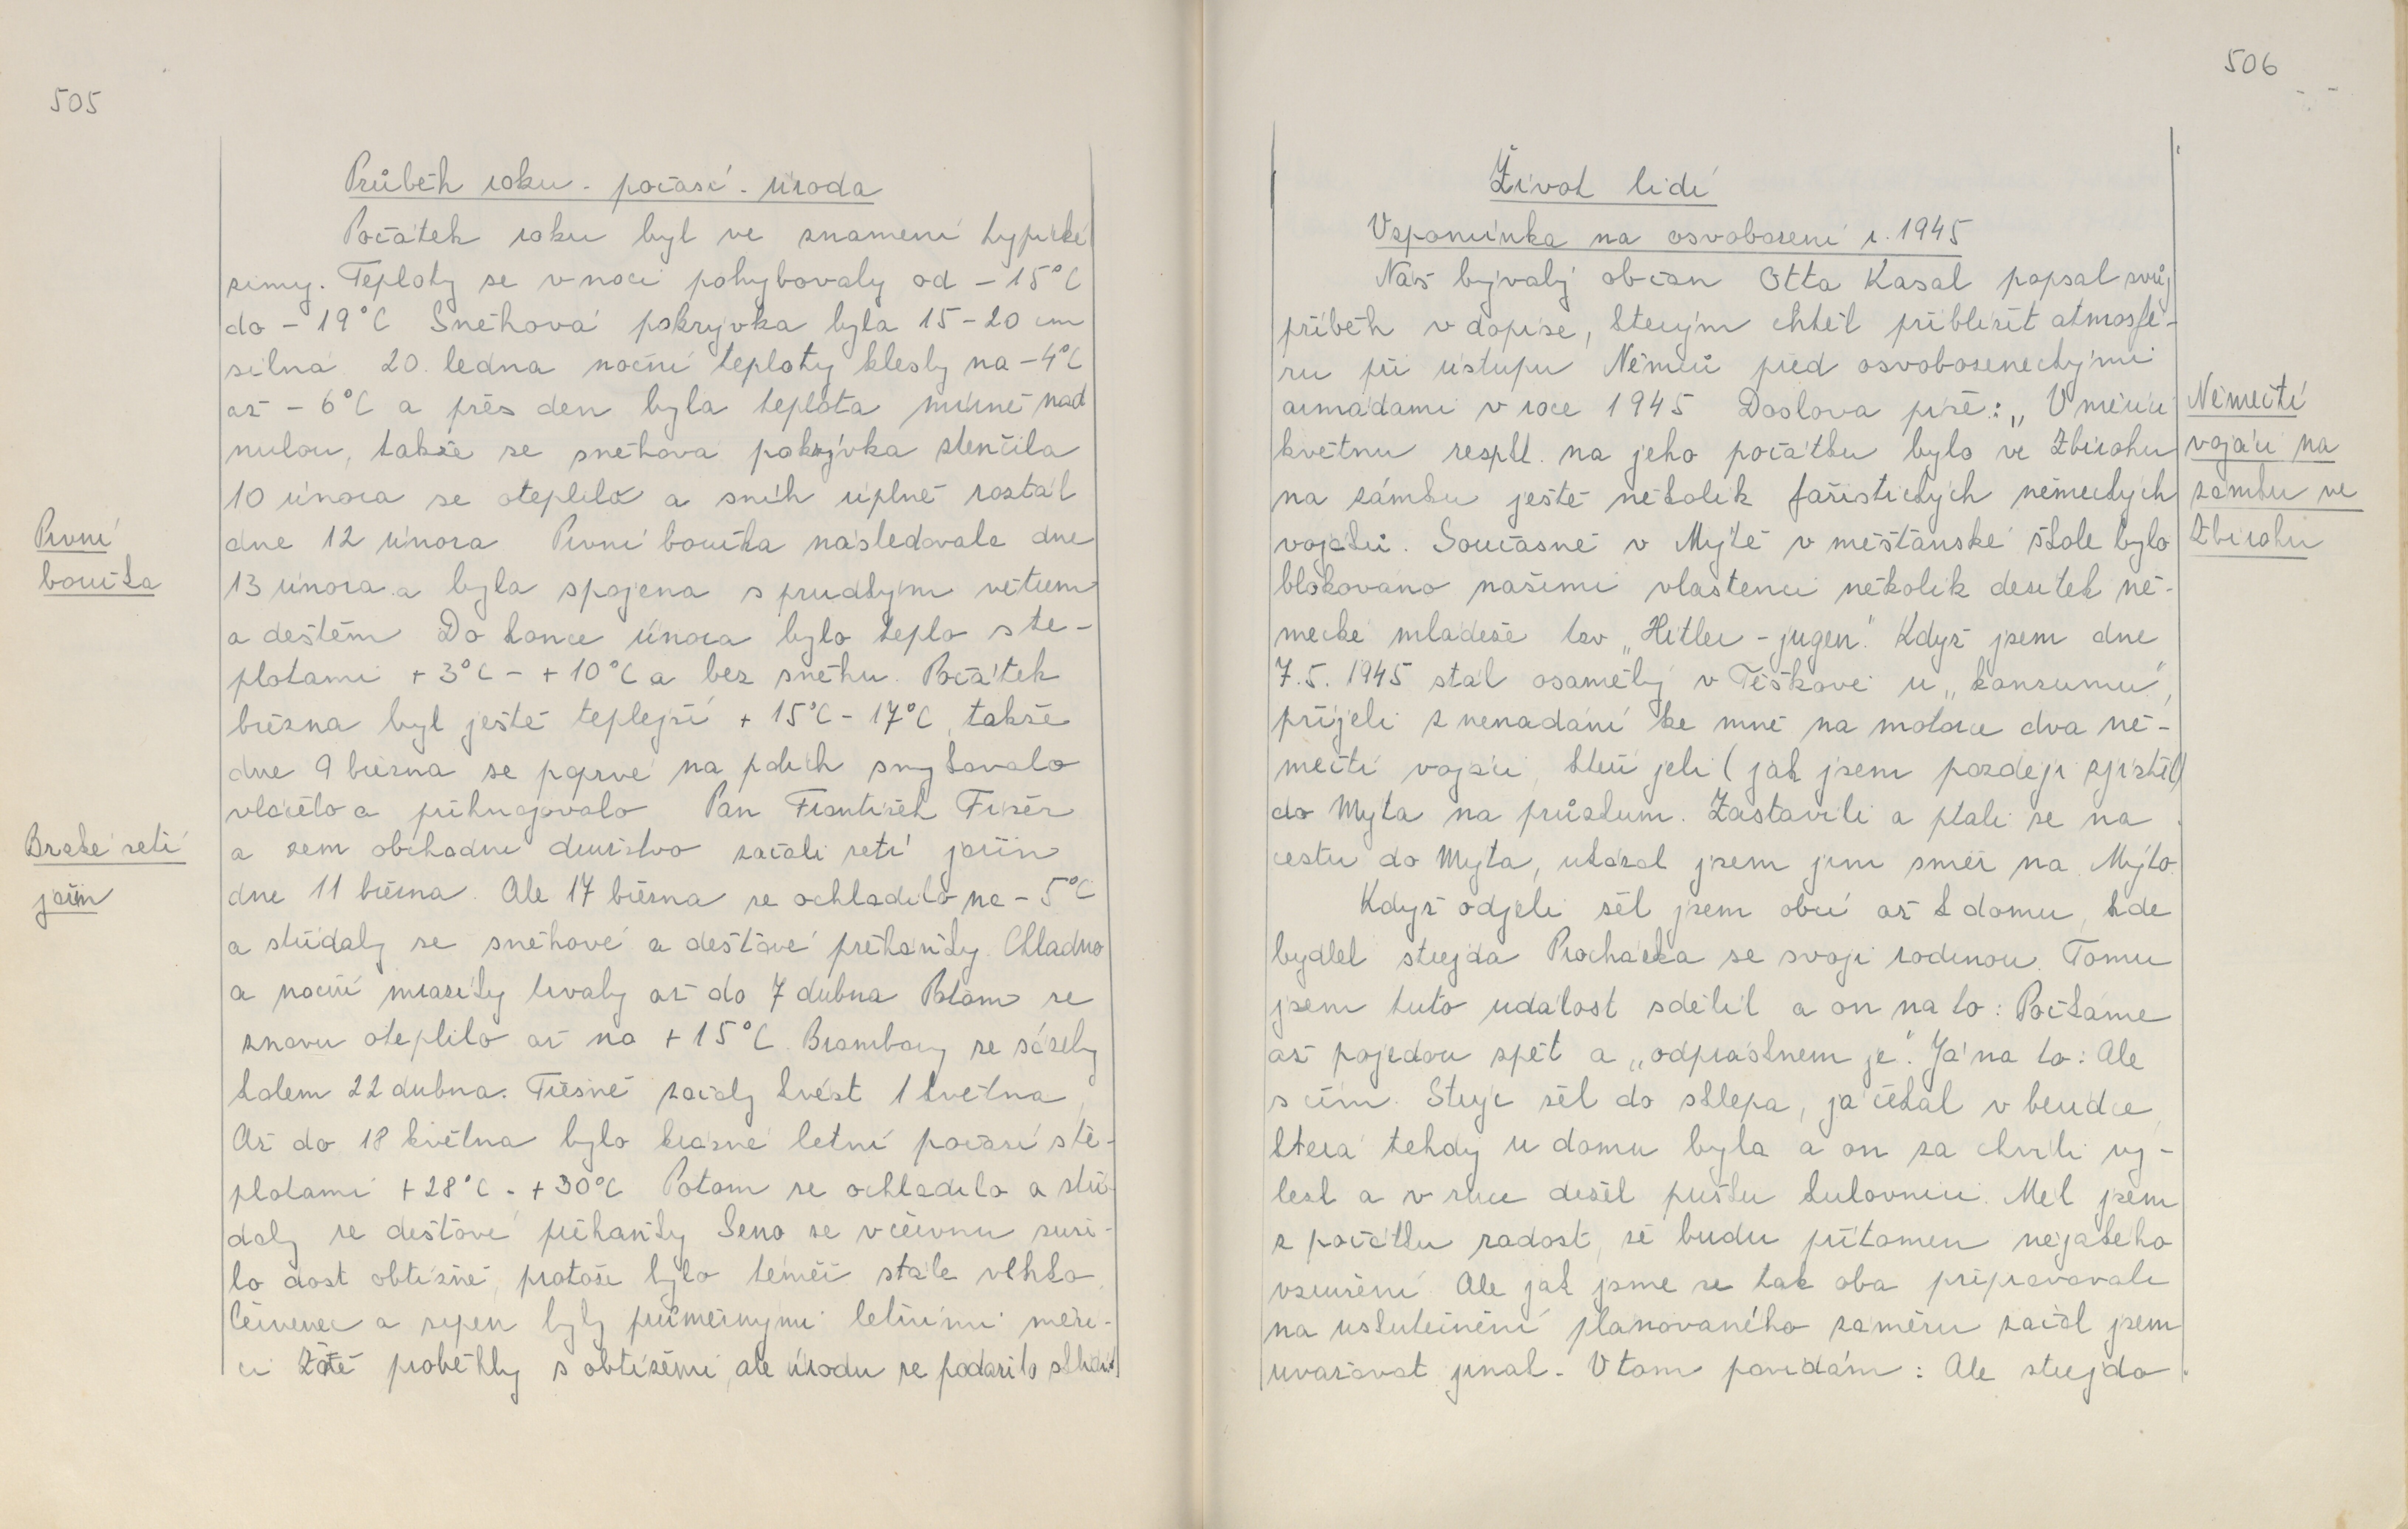 505
Průběh roku - počasí - úroda
Počátek roku byl ve znamení typické
zimy. Teploty se v noci pohybovaly od - 15°C
do - 19°C Sněhová pokrývka byla 15 - 20 cm
silná 20. ledna noční teploty klesly na - 4°C
až - 6°C a přes den byla teplota mírně nad
nulou, takže se sněhová pokrývka ztenčila
10 února se oteplilo a sníh úplně roztál
dne 12 února První bouřka následovala dne
13 února a byla spojena s prudkým větrem
a deštěm Do konce února bylo teplo s te-
plotami + 3°C - + 10°C a bez sněhu. Počátek
března byl ještě teplejší + 15°C - 17°C, takže
dne 9 března se poprvé na polích smykovalo
vláčelo a přihnojovalo Pan František Fišer
a zem obchodní družstvo začali setí jařin
dne 11 března. Ale 17 března se ochladilo na - 5°C
a střídaly se sněhové a dešťové přeháňky. Chladno
a noční mrazíky trvaly až do 7 dubna Potom se
znovu oteplilo až na + 15°C. Brambory se sázely
kolem 22 dubna. Třešně začaly kvést 1 května,
Až do 18 května bylo krásné letní počasí s te-
plotami +28°C - +30°C Potom se ochladilo a stří-
daly se dešťové přeháňky Seno se v červnu suši-
lo dost obtížně, protože bylo téměř stále vlhko.
Červenec a srpen byly průměrnými letními měsí-
ci Žatě proběhly s obtížemi, ale úrodu se podařilo sklidit
První
bouřka
Brzké setí
jařin
506
Život lidí
Vzpomínka na osvobození r. 1945
Náš bývalý občan Otta Kasal popsal svůj
příběh v dopise, kterým chtěl přiblížit atmosfé-
ru při ústupu Němců před osvobozeneckými
armádami v roce 1945 Doslova píše: „V měsíci
květnu respkt. na jeho počátku bylo ve Zbirohu
na zámku ještě několik fašistických německých
vojáků. Současně v Mýtě v měšťanské škole bylo
blokováno našimi vlastenci několik desítek ně-
mecké mládeže tzv „Hitler - jugen". Když jsem dne
7. 5. 1945 stál osamělý v Těškově u „konzumu",
přijeli z nenadání ke mně na motorce dva ně-
mečtí vojáci, kteří jeli ( jak jsem pozdeji zjistil)
do Mýta na průzkum. Zastavili a ptali se na
cestu do Mýta, ukázal jsem jim směr na Mýto.
Když odjeli šel jsem obcí až k domu, kde
bydlel strejda Procházka se svojí rodinou. Tomu
jsem tuto událost sdělil a on na to: Počkáme
až pojedou zpět a „odprásknem je". Já na to: Ale
s čím. Strejc šel do sklepa, já čekal v boudce,
která tehdy u domu byla a on za chvíli vy-
lezl a v ruce držel pušku kulovnici. Měl jsem
z počátku radost, že budu přítomen nějakého
vzrušení Ale jak jsme se tak oba připravovali
na uskutečnění plánovaného záměru začal jsem
uvažovat jinak. V tom povídám: Ale strejdo
Němečtí
vojáci na
zámku ve
Zbirohu